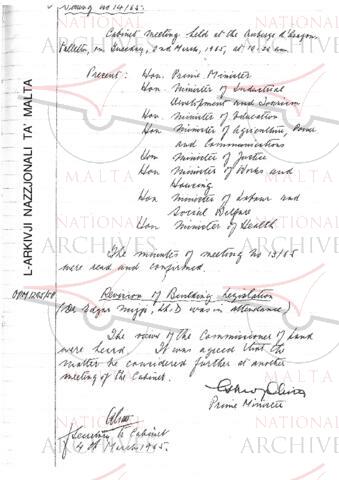 Meeting No 14/65.
Cabinet Meeting held at the Auberge d'Aragon,
Valletta, on Tuesday, 2nd March, 1965, at 10.30 am.
Present: Hon. Prime Minister
Hon. Minister of Industrial
Development and Tourism
Hon. Minister of Education
Hon. Minister of Agriculture, Power
and Communications
Hon. Minister of Justice
Hon. Minister of Works and
Housing
Hon. Minister of Labour and
Social Welfare
Hon. Minister of Health
The minutes of meeting No 13/65
were read and confirmed.
Revision of Building Legislation
(Dr Edgar Mizzi, LL.D was in attendance)
The views of the Commissioner of Land
were heard. It was agreed that the
matter be considered further at another
meeting of the Cabinet.
Prime Minister
Secretary to Cabinet
4th March 1965.
L-ARKIVJI NAZZJONALI TA' MALTA
NATIONAL
ARCHIVES
MALTA